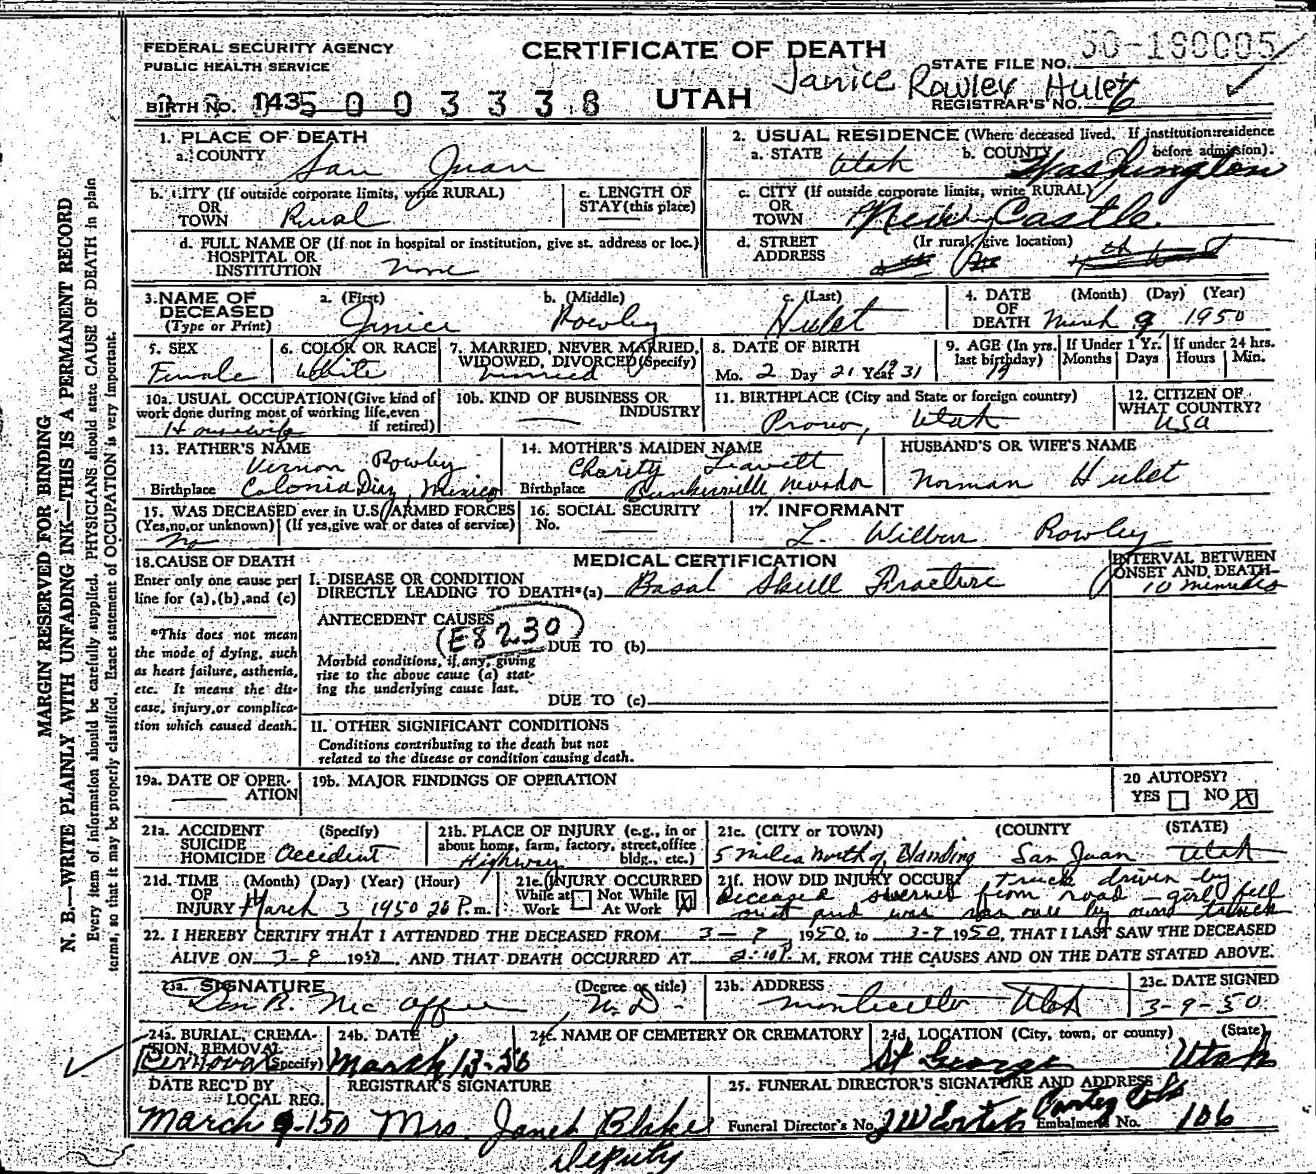 FEDERAL SECURITY AGENCY
PUBLIC HEALTH SERVICE
CERTIFICATE OF DEATH
STATE FILE NO.
50-180005
Janice Rowley Hulet
BIRTH NO. 143
UTAH
REGISTRAR'S NO. 6
1. PLACE OF DEATH
a. COUNTY San Juan
2. USUAL RESIDENCE (Where deceased lived. If institution: residence before admission).
a. STATE Utah b. COUNTY Washington
b. CITY (If outside corporate limits, write RURAL)
OR
TOWN Rural
c. LENGTH OF
STAY (this place)
c. CITY (If outside corporate limits, write RURAL)
OR
TOWN New Castle
d. FULL NAME OF (If not in hospital or institution, give st. address or loc.)
HOSPITAL OR
INSTITUTION None
d. STREET (If rural, give location)
ADDRESS
3. NAME OF
DECEASED
(Type or Print)
a. (First) Janice
b. (Middle) Rowley
c. (Last) Hulet
4. DATE (Month) (Day) (Year)
OF
DEATH March 9 1950
5. SEX
Female
6. COLOR OR RACE
White
7. MARRIED, NEVER MARRIED,
WIDOWED, DIVORCED (Specify)
married
8. DATE OF BIRTH
Mo. 2 Day 21 Year 1931
9. AGE (In yrs.
last birthday) 19
If Under 1 Yr.
Months Days
If under 24 hrs.
Hours Min.
10a. USUAL OCCUPATION (Give kind of
work done during most of working life, even
if retired)
Housewife
10b. KIND OF BUSINESS OR
INDUSTRY
11. BIRTHPLACE (City and State or foreign country)
Provo, Utah
12. CITIZEN OF
WHAT COUNTRY?
USA
13. FATHER'S NAME
Vernon Rowley
Birthplace Colonia Diaz, Mexico
14. MOTHER'S MAIDEN NAME
Charity Leavett
Birthplace Bunkerville, Nevada
HUSBAND'S OR WIFE'S NAME
Norman Hulet
15. WAS DECEASED ever in U.S. ARMED FORCES
(Yes, no, or unknown) (If yes, give war or dates of service)
No
16. SOCIAL SECURITY
No.
17. INFORMANT
L. Wilbur Rowley
18. CAUSE OF DEATH
Enter only one cause per
line for (a), (b), and (c)
*This does not mean
the mode of dying, such
as heart failure, asthenia,
etc. It means the dis-
ease, injury, or complica-
tion which caused death.
MEDICAL CERTIFICATION
I. DISEASE OR CONDITION
DIRECTLY LEADING TO DEATH*(a) Basal Skull Fracture
INTERVAL BETWEEN
ONSET AND DEATH
10 minutes
ANTECEDENT CAUSES
(E8230)
DUE TO (b)
Morbid conditions, if any, giving
rise to the above cause (a) stat-
ing the underlying cause last.
DUE TO (c)
II. OTHER SIGNIFICANT CONDITIONS
Conditions contributing to the death but not
related to the disease or condition causing death.
19a. DATE OF OPER-
ATION
19b. MAJOR FINDINGS OF OPERATION
20 AUTOPSY?
YES NO X
21a. ACCIDENT (Specify)
SUICIDE
HOMICIDE Accident
21b. PLACE OF INJURY (e.g., in or
about home, farm, factory, street, office
bldg., etc.)
Highway
21c. (CITY or TOWN) (COUNTY (STATE)
5 miles North of Blanding San Juan Utah
21d. TIME (Month) (Day) (Year) (Hour)
OF
INJURY March 3 1950 P.m.
21e. INJURY OCCURRED
While at Work Not While At Work X
21f. HOW DID INJURY OCCUR?
truck driven by
deceased swerved from road - girl fell
out and was ran over by own truck
22. I HEREBY CERTIFY THAT I ATTENDED THE DECEASED FROM 3-9, 1950, to 3-9 1950, THAT I LAST SAW THE DECEASED
ALIVE ON 3-9 1950, AND THAT DEATH OCCURRED AT 2:10 P.M, FROM THE CAUSES AND ON THE DATE STATED ABOVE.
23a. SIGNATURE (Degree or title)
M.D.
23b. ADDRESS
Monticello Utah
23c. DATE SIGNED
3-9-50
24a. BURIAL, CREMA-
TION, REMOVAL
(Specify)
Removal
24b. DATE
March 13-50
24c. NAME OF CEMETERY OR CREMATORY
24d. LOCATION (City, town, or county) (State)
St George Utah
DATE REC'D BY
LOCAL REG.
March 9-150
REGISTRAR'S SIGNATURE
Mrs. Janet Blake
Deputy
25. FUNERAL DIRECTOR'S SIGNATURE AND ADDRESS
Funeral Director's No.
Embalment No. 106
MARGIN RESERVED FOR BINDING
N. B.—WRITE PLAINLY WITH UNFADING INK—THIS IS A PERMANENT RECORD
Every item of information should be carefully supplied. PHYSICIANS should state CAUSE OF DEATH in plain
terms, so that it may be properly classified. Exact statement of OCCUPATION is very important.